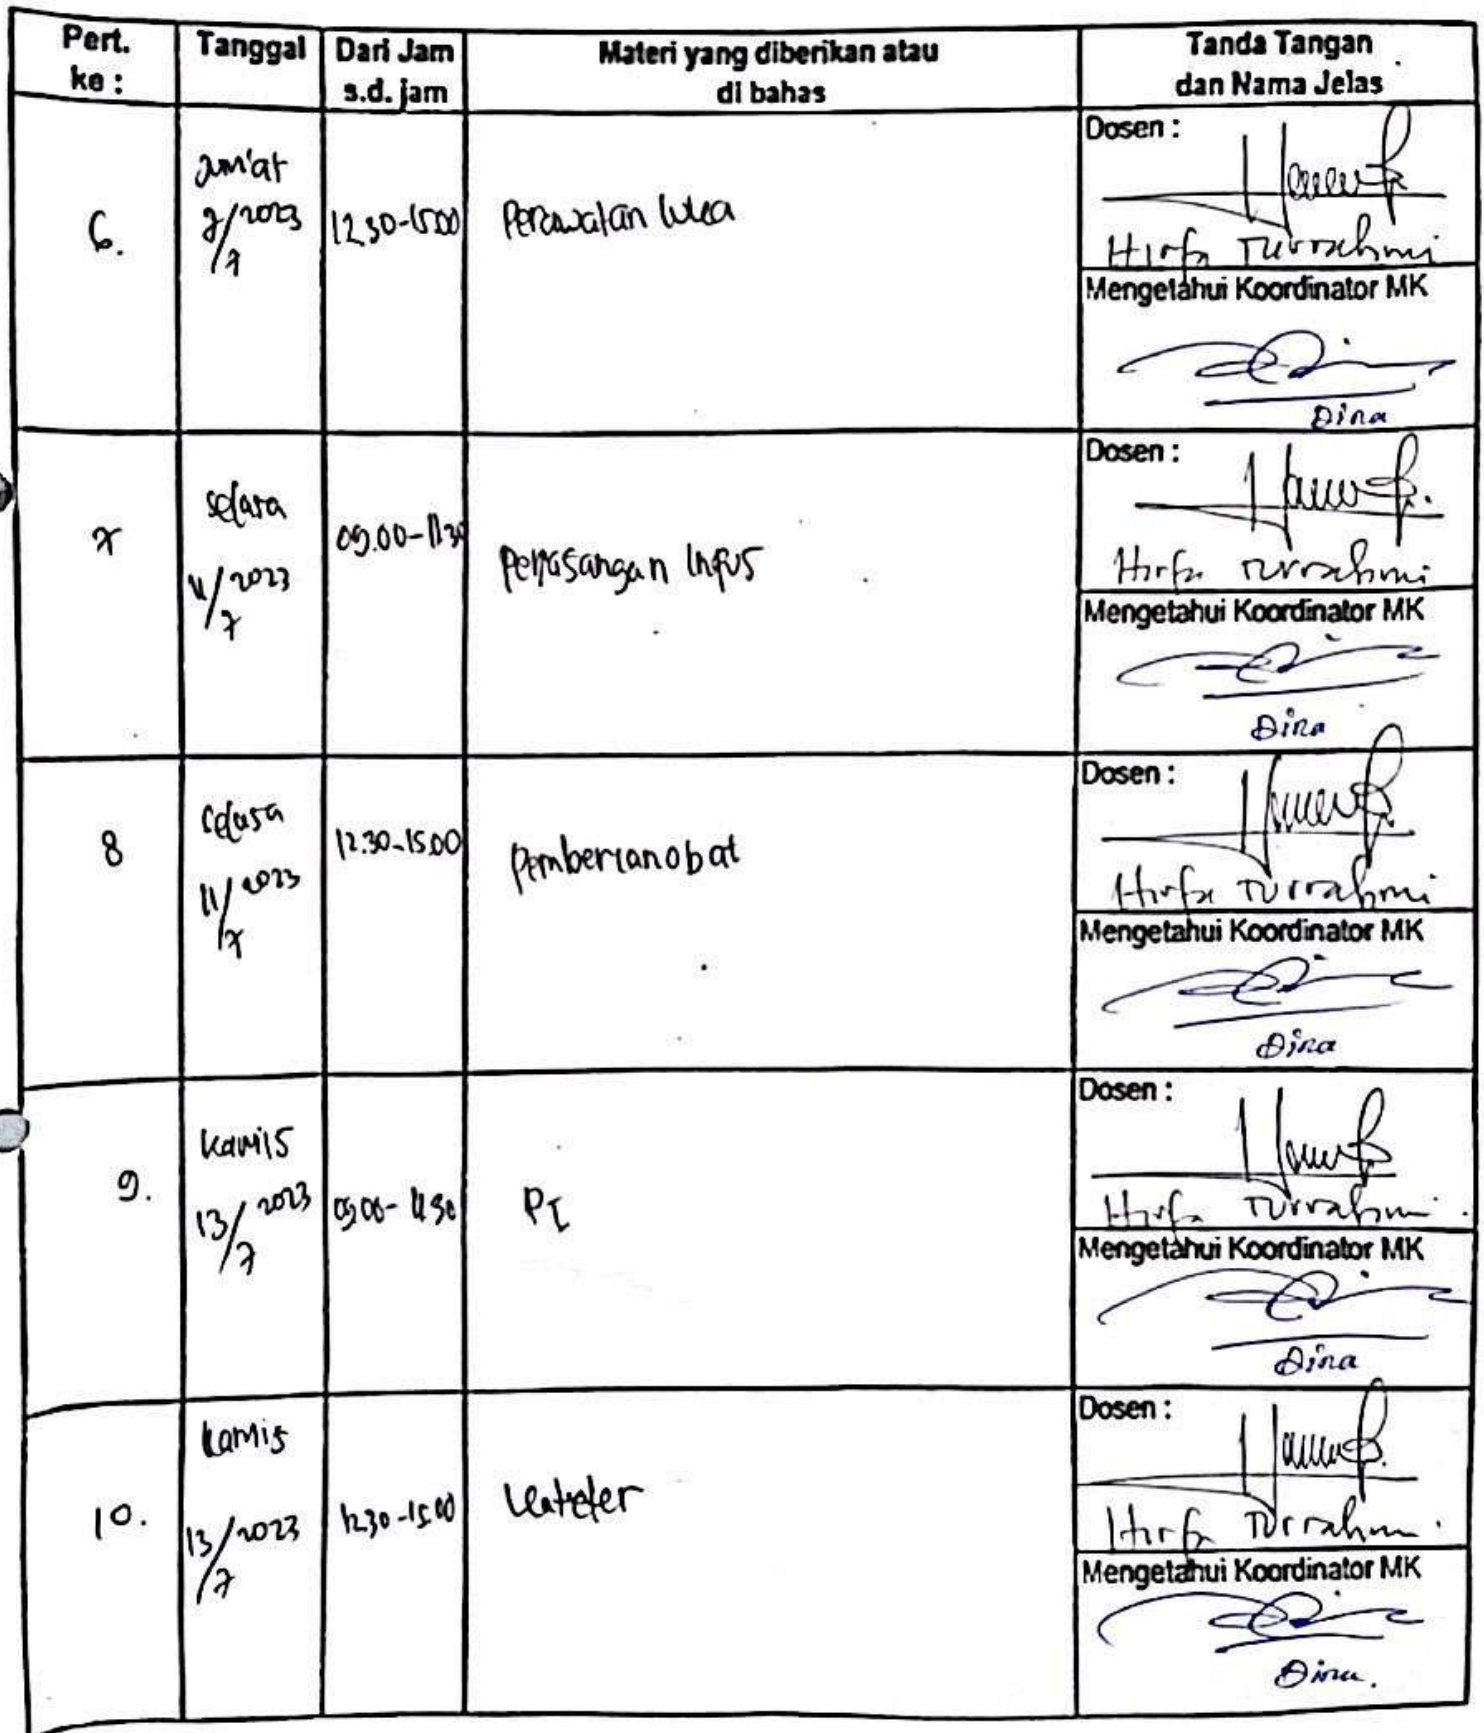 Pert. ke :
Tanggal
Dari Jam s.d. jam
Materi yang diberikan atau di bahas
Tanda Tangan dan Nama Jelas
6.
Jum'at
7/7 2023
12.30-15.00
Perawatan luka
Dosen :
Hirfa Turrahmi
Mengetahui Koordinator MK
Dina
7
selasa
11/7 2023
09.00-11.30
Pemasangan Infus
Dosen :
Hirfa Turrahmi
Mengetahui Koordinator MK
Dina
8
selasa
11/7 2023
12.30-15.00
Pemberian obat
Dosen :
Hirfa Turrahmi
Mengetahui Koordinator MK
Dina
9.
kamis
13/7 2023
09.00-11.30
PI
Dosen :
Hirfa Turrahmi
Mengetahui Koordinator MK
Dina
10.
kamis
13/7 2023
12.30-15.00
kateter
Dosen :
Hirfa Turrahmi
Mengetahui Koordinator MK
Dina.